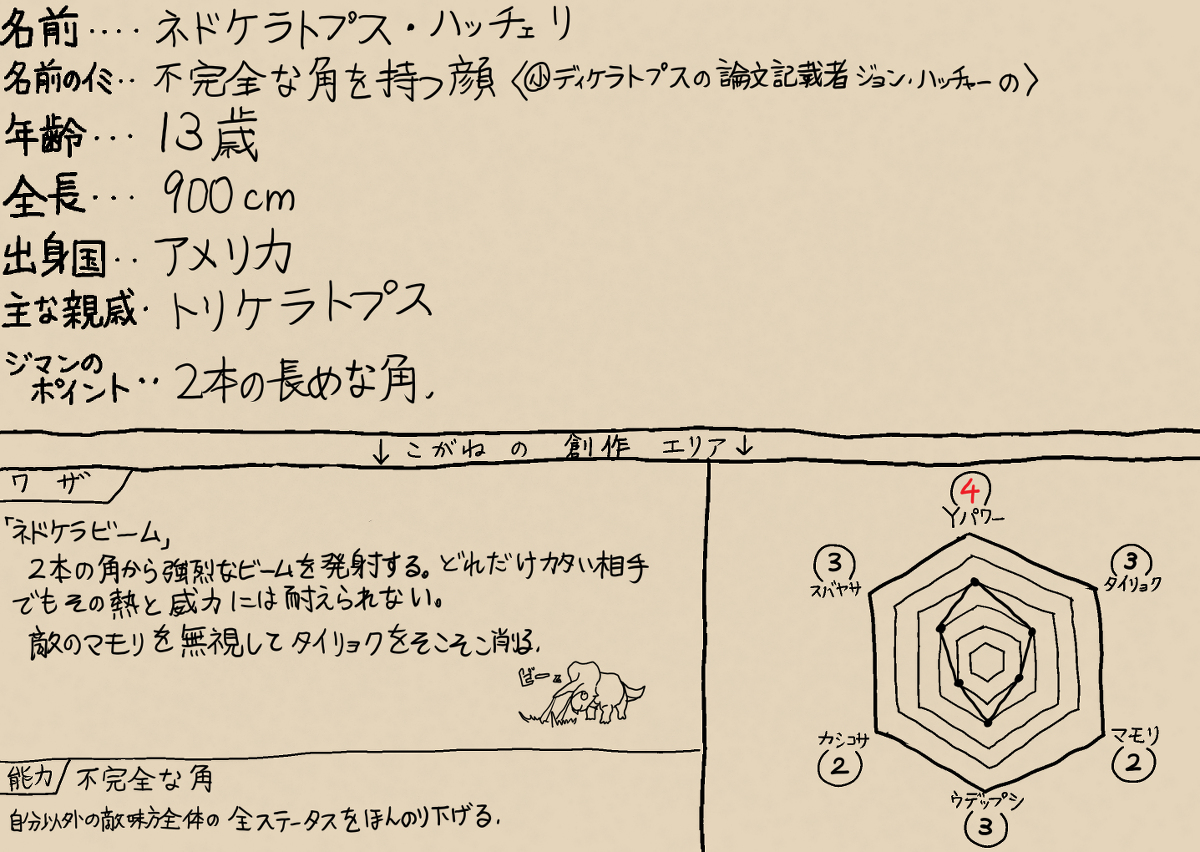 名前‥‥ネドケラトプス・ハッチェリ
名前のイミ‥不完全な角を持つ顔〈小ディケラトプスの論文記載者ジョン・ハッチャーの〉
年齢…13歳
全長…900cm
出身国‥アメリカ
主な親戚・トリケラトプス
ジマンの
ポイント‥2本の長めな角.
↓こがねの創作エリア↓
ワザ
「ネドケラビーム」
2本の角から強烈なビームを発射する。どれだけカタい相手
でもその熱と威力には耐えられない。
敵のマモリを無視してタイリョクをそこそこ削る.
ビー
能力/不完全な角
自分以外の敵味方全体の全ステータスをほんのり下げる.
4
Yパワー
3
スバヤサ
3
タイリョク
カシコサ
2
マモリ
2
ウデップシ
3